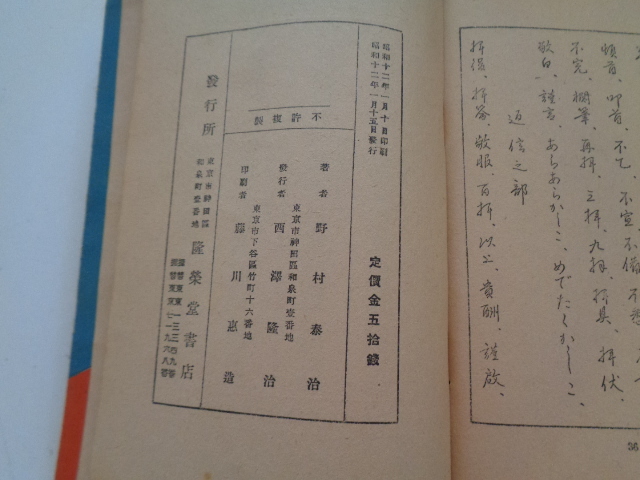 頓首、叩首、不乞、不宣、不備、不悉、
不宛、樹葉、再拝、三拝、九拝、拝具、拝伏、
敬白、謹言、あらあらかしこ、めでたくかしこ、
返信之部
拝復、拝答、敬服、百拝、以上、貴酬、謹啟、
36
定價金五拾錢
昭和十二年一月十日印刷
昭和十二年一月十五日發行
不許複製
著者 野村泰治
東京市神田區和泉町壹番地
發行者 西澤隆治
東京市下谷區竹町十六番地
印刷者 藤川惠造
發行所
東京市神田區
和泉町壹番地
隆榮堂書店